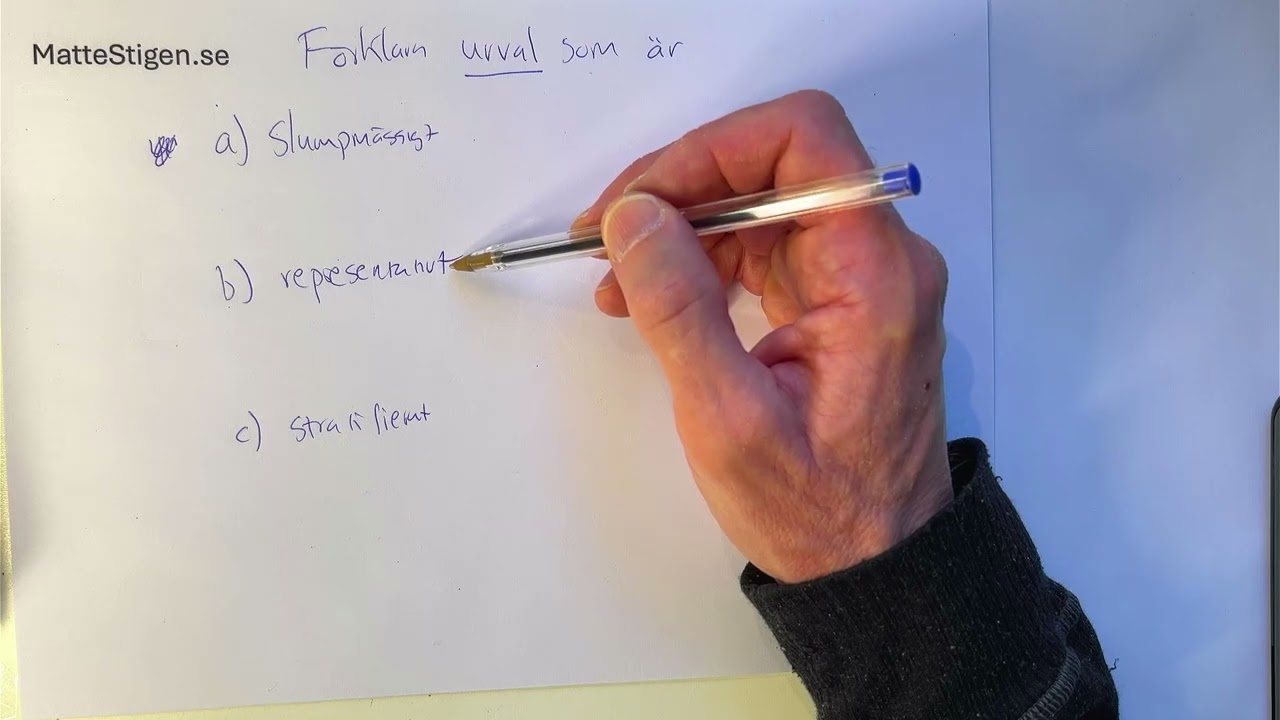 MatteStigen.se
Förklara urval som är
a) Slumpmässigt
b) representativt
c) stratifierat